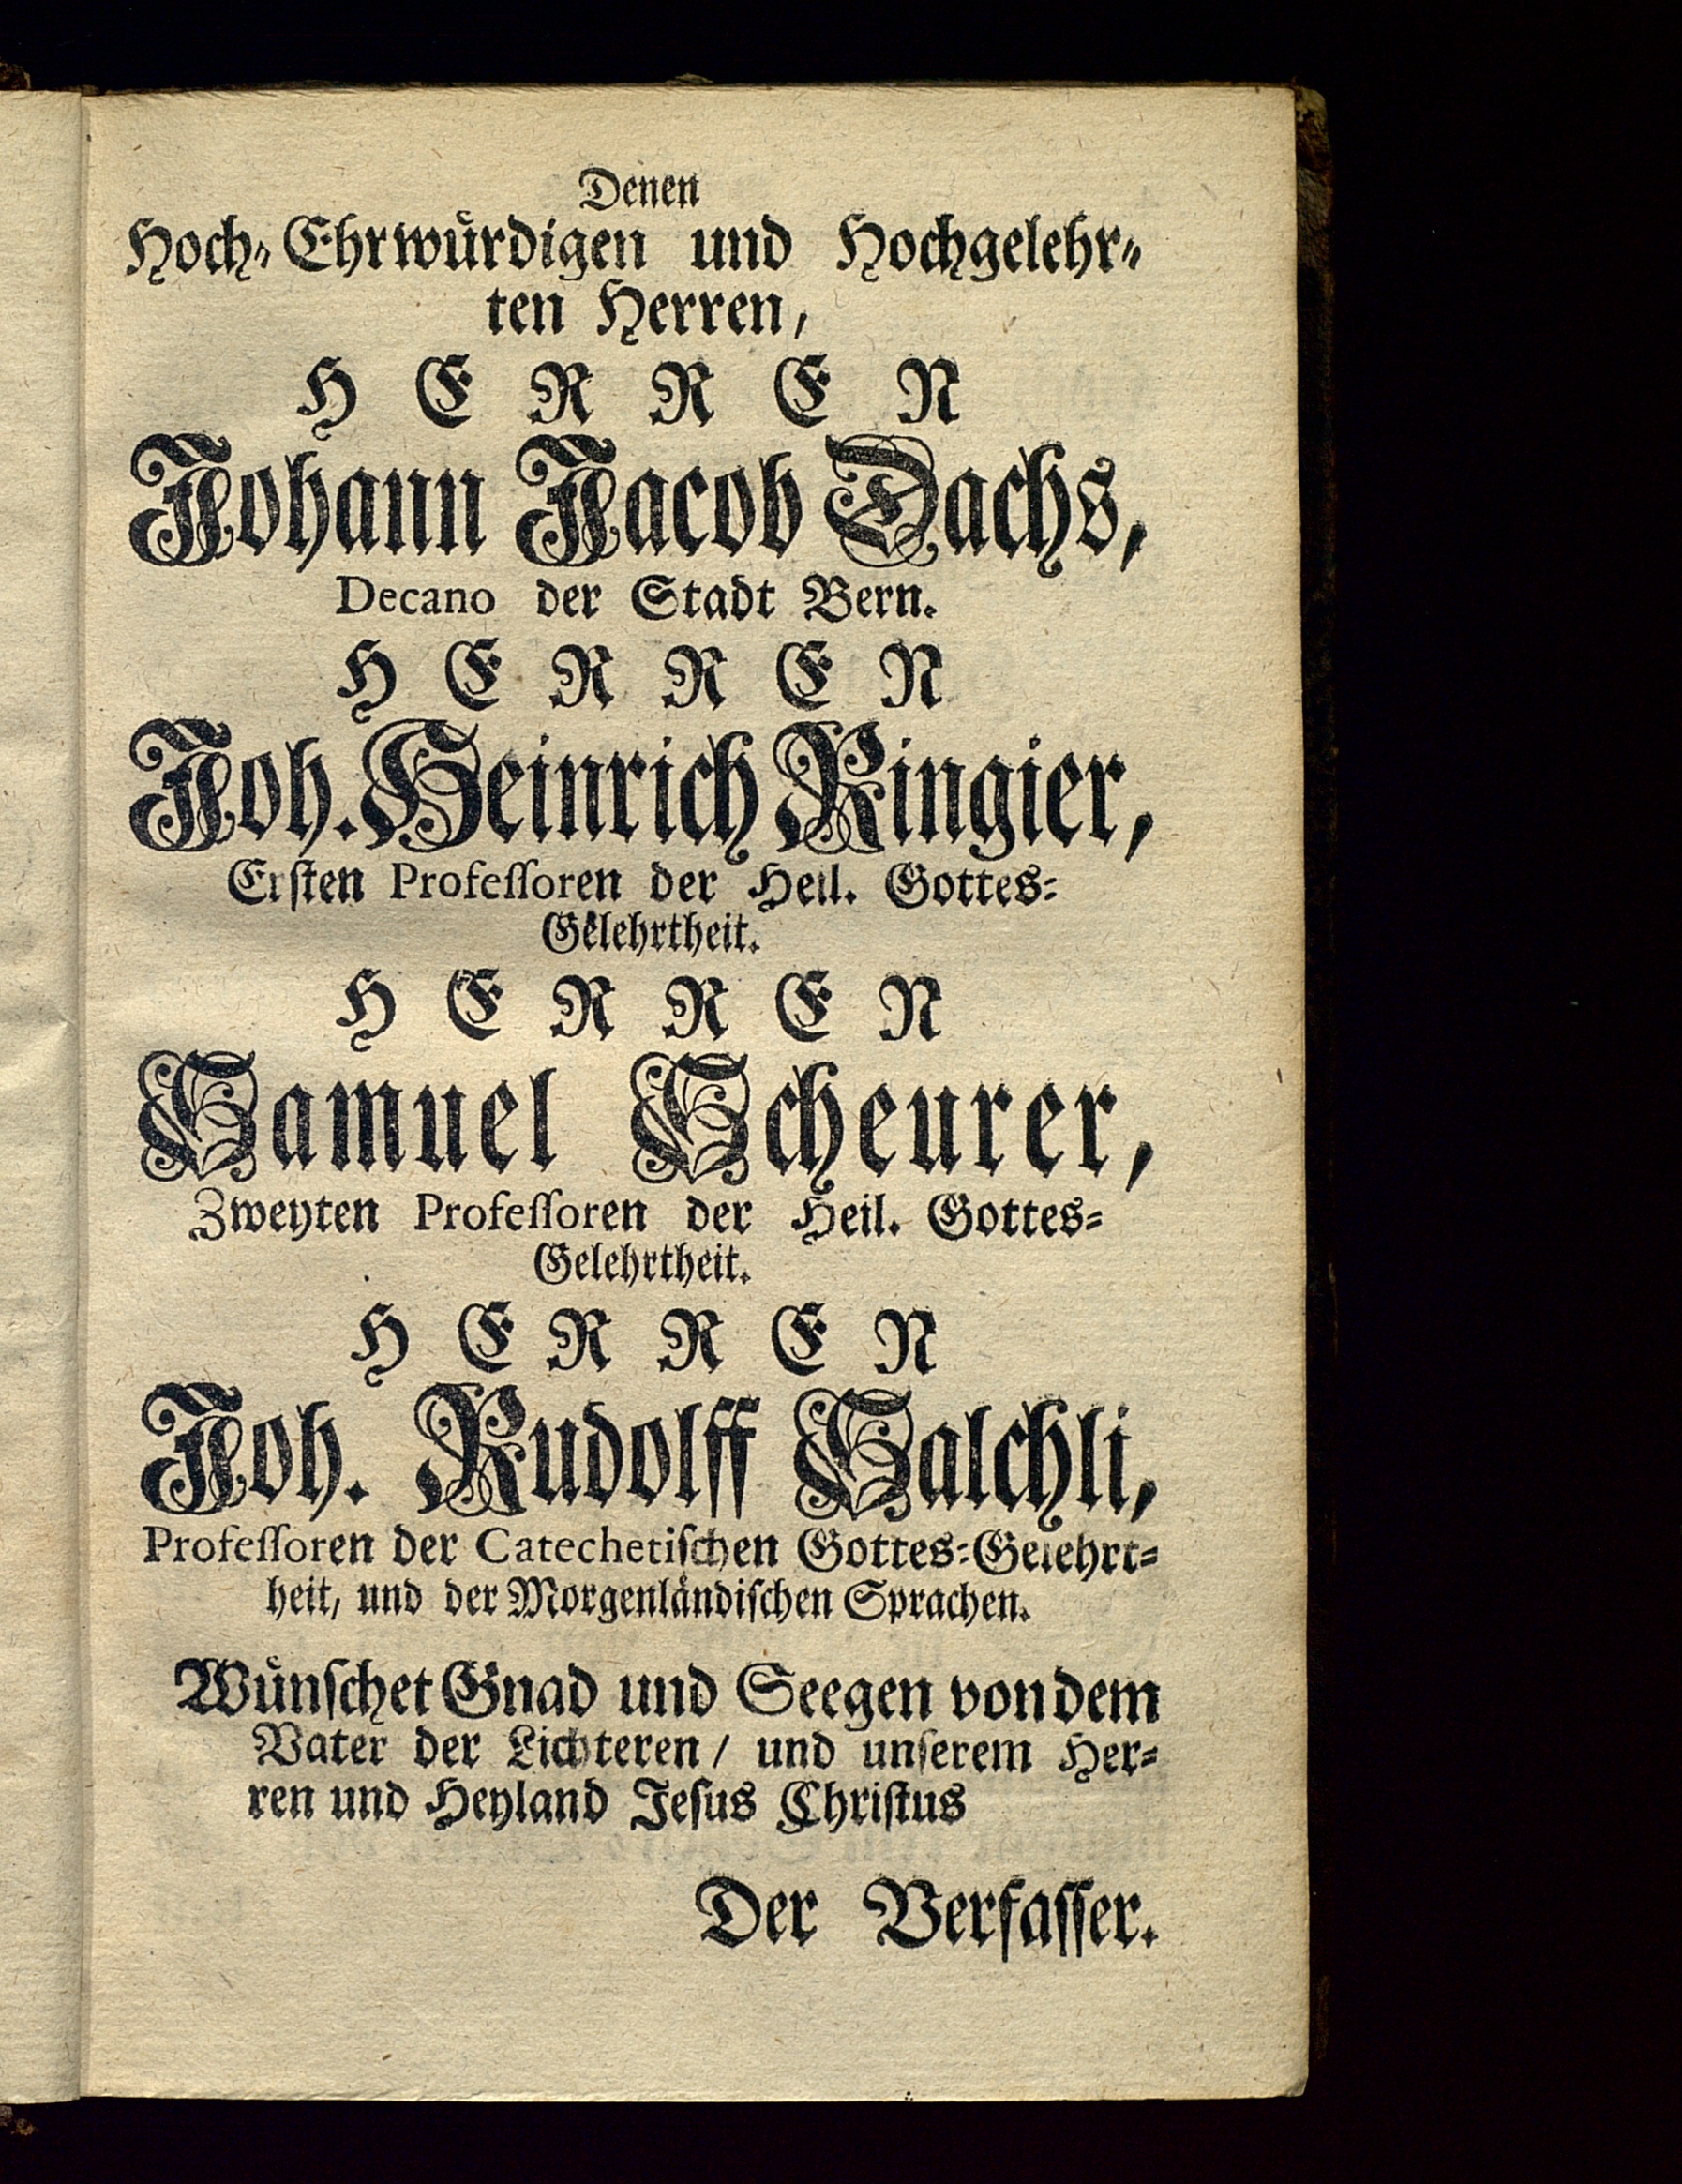 Denen
Hoch-Ehrwuͤrdigen und Hochgelehr-
ten Herren,
HERREN
Johann Jacob Dachs,
Decano der Stadt Bern.
HERREN
Joh. Heinrich Ringier,
Ersten Professoren der Heil. Gottes-
Gelehrtheit.
HERREN
Samuel Scheurer,
Zweyten Professoren der Heil. Gottes-
Gelehrtheit.
HERREN
Joh. Rudolff Salchli,
Professoren der Catechetischen Gottes-Gelehrt-
heit, und der Morgenlaͤndischen Sprachen.
Wuͤnschet Gnad und Seegen von dem
Vater der Lichteren / und unserem Her-
ren und Heyland Jesus Christus
Der Verfasser.